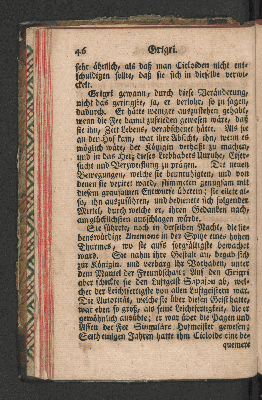 46 Grigri.
sehr ährlich, als daß man Cieloiden nicht ent-
schuldigen sollte, daß sie sich in dieselbe verwi-
ckelt.
Grigri gewann, durch diese Veränderung,
nicht das geringste, ja, er verlohr, so zu sagen,
dadurch. Er hätte weniger auszustehen gehabt,
wenn die Fee damit zufrieden gewesen wäre, daß
sie ihn, Zeit Lebens, verabscheuet hätte. Als sie
an der Hof kam, war ihre Absicht, ihn, wenn es
möglich wäre, der Königin verhaßt zu machen,
und in das Herz dieses Liebhabers Unruhe, Eifer-
sucht und Verzweiflung zu prägen. Die neuen
Bewegungen, welche sie beunruhigten, und von
denen sie verirret ware, stimmeten genugsam mit
diesem grausamen Entwurfe überein; sie eilete al-
so, ihn auszuführen, und bediente sich folgender
Mittel, durch welche er, ihren Gedanken nach,
am glücklichsten ausschlagen würde.
Sie führete, noch in derselben Nacht, die lie-
benswürdige Amenone in der Spitze eines hohen
Thurmes, wo sie aufs sorgfältigste bewachet
ward. Sie nahm ihre Gestalt an, begab sich
zur Königin, und verbarg ihr Vorhaben, unter
dem Mantel der Freundschaft; Auf den Grigri
aber schickte sie den Luftgeist Sapajou ab, wel-
cher der Leichtfertigste von allen Luftgeistern war.
Die Autorität, welche sie über diesen Geist hatte,
war eben so groß, als seine Leichtfertigkeit, die er
gewöhnlich ausübte; er war über die Pagen und
Affen der Fee Hofmeister gewesen;
Seith einigen Jahren hatte ihm Cieloide eine be-
quemere